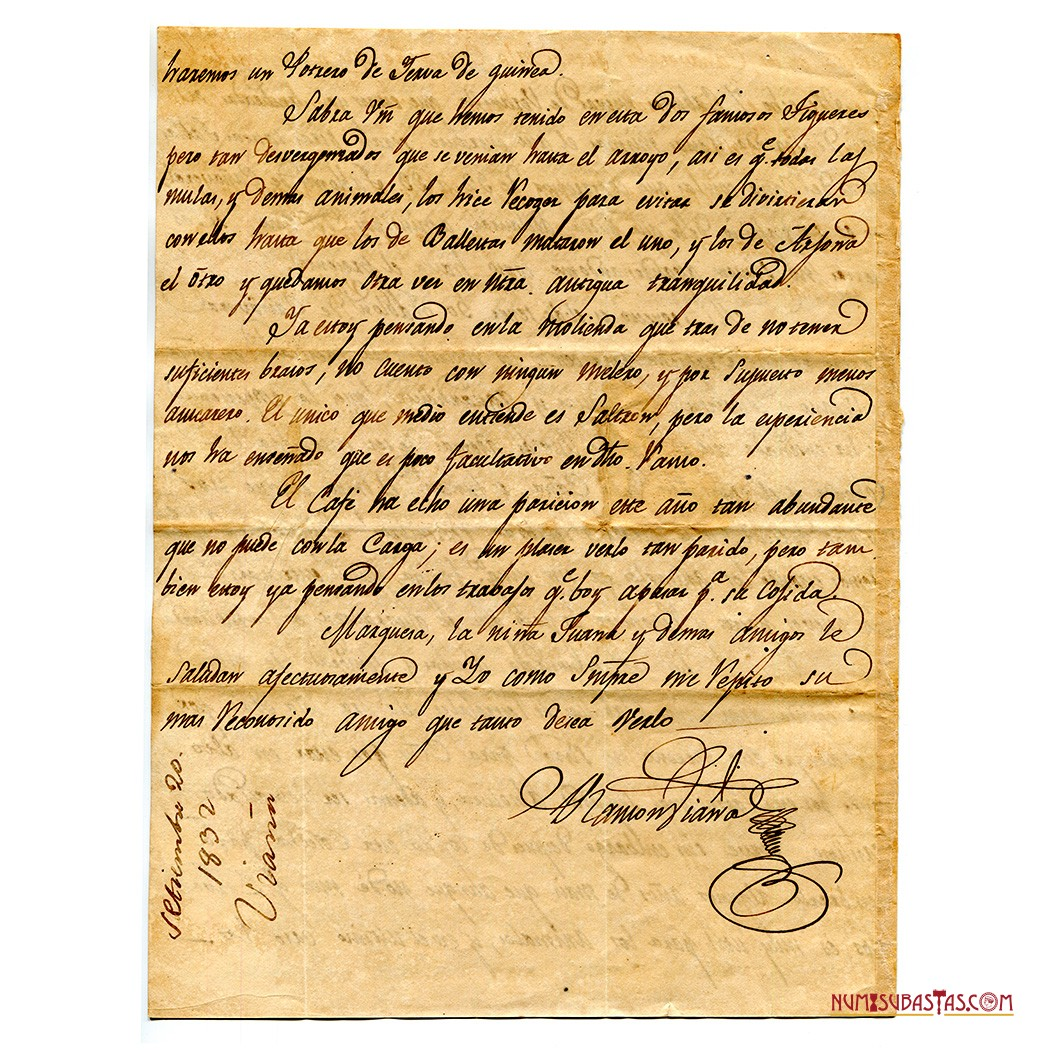 haremos un Potrero de Yerva de guinea.
Sabra Vm que hemos tenido en esta dos famosos Tigueres
pero tan desvergonsados que se venian hasta el arroyo, asi es qe. todas las
mulas, y demas animales, los hice Recoger para evitar se divirtieran
con ellos hasta que los de Ballestas mataron el uno, y los de
el otro y quedamos otra vez en ntra. antigua tranquilidad.
Ya estoy pensando en la molienda que tras de no tener
suficientes brasos, no cuento con ningun melero, y por supuesto menos
asucarero. El unico que medio entiende es pero la esperiencia
nos ha enseñado que es poco facultativo en dho. Ramo.
El Café ha echo una paricion este año tan abundante
que no puede con la Carga; es un plaser verlo tan parido, pero tam
bien estoy ya pensando en los trabajos qe. boy apasar pa. su Cojida
la niña Juana y demas amigos le
saludan afectuosamente y Yo como Smpre me Repito su
mas Reconosido amigo que tanto desea Verlo
Ramon Viaña
Setiembre 20.
1832
Viaña
NUMISUBASTAS.COM